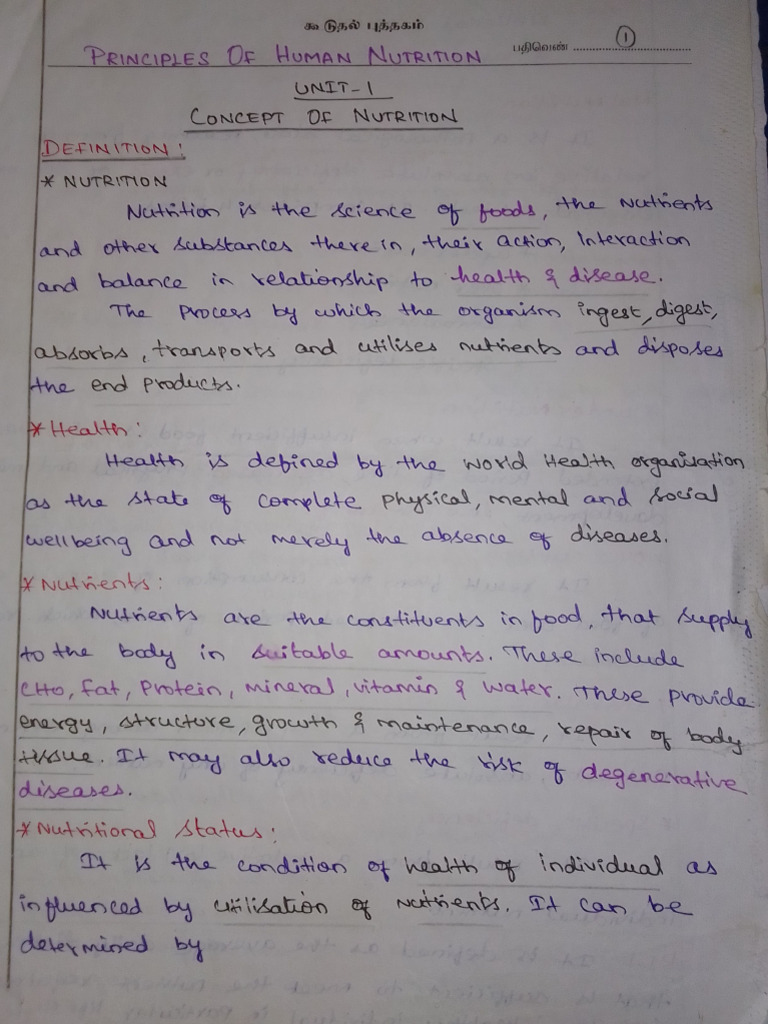 கூடுதல் புத்தகம்
பதிவெண் ........................ 1
PRINCIPLES OF HUMAN NUTRITION
UNIT-1
CONCEPT OF NUTRITION
DEFINITION:
* NUTRITION
Nutrition is the science of foods, the nutrients
and other substances there in, their action, Interaction
and balance in relationship to health & disease.
The process by which the organism ingest, digest,
absorbs, transports and utilises nutrients and disposes
the end products.
* Health:
Health is defined by the world Health organisation
as the state of complete physical, mental and social
wellbeing and not merely the absence of diseases.
* Nutrients:
Nutrients are the constituents in food, that supply
to the body in suitable amounts. These include
CHO, fat, Protein, mineral, vitamin & water. These provide
energy, structure, growth & maintenance, repair of body
tissue. It may also reduce the risk of degenerative
diseases.
* Nutritional Status:
It is the condition of health of individual as
influenced by utilisation of nutrients. It can be
determined by